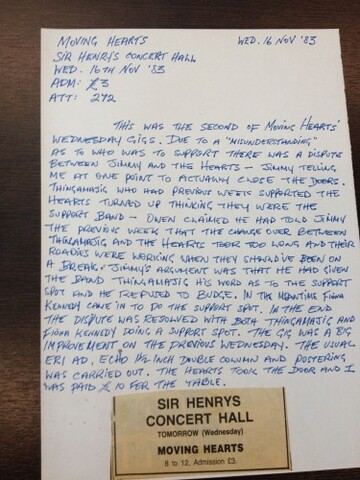 MOVING HEARTS WED. 16 NOV '83
SIR HENRYS CONCERT HALL
WED. 16TH NOV '83
ADM: £3
ATT: 272
THIS WAS THE SECOND OF MOVING HEARTS'
WEDNESDAY GIGS. DUE TO A "MISUNDERSTANDING"
AS TO WHO WAS TO SUPPORT THERE WAS A DISPUTE
BETWEEN JIMMY AND THE HEARTS – JIMMY TELLING
ME AT ONE POINT TO ACTUALLY CLOSE THE DOORS.
THINGAMAJIG WHO HAD PREVIOUS WEEK SUPPORTED THE
HEARTS TURNED UP THINKING THEY WERE THE
SUPPORT BAND – OWEN CLAIMED HE HAD TOLD JIMMY
THE PREVIOUS WEEK THAT THE CHANGE OVER BETWEEN
THINGAMAJIG AND THE HEARTS TOOK TOO LONG AND THEIR
ROADIES WERE WORKING WHEN THEY SHOULD'VE BEEN ON
A BREAK. JIMMY'S ARGUMENT WAS THAT HE HAD GIVEN
THE BAND THINGAMAJIG HIS WORD AS TO THE SUPPORT
SPOT AND HE REFUSED TO BUDGE. IN THE MEANTIME FIONA
KENNEDY CAME IN TO DO THE SUPPORT SPOT. IN THE END
THE DISPUTE WAS RESOLVED WITH BOTH THINGAMAJIG AND
FIONA KENNEDY DOING A SUPPORT SPOT. THE GIG WAS A BIG
IMPROVEMENT ON THE PREVIOUS WEDNESDAY. THE USUAL
ERI AD, ECHO 1½ INCH DOUBLE COLUMN AND POSTERING
WAS CARRIED OUT. THE HEARTS TOOK THE DOOR AND I
WAS PAID £10 FOR THE TABLE.
SIR HENRYS
CONCERT HALL
TOMORROW (Wednesday)
MOVING HEARTS
8 to 12. Admission £3.